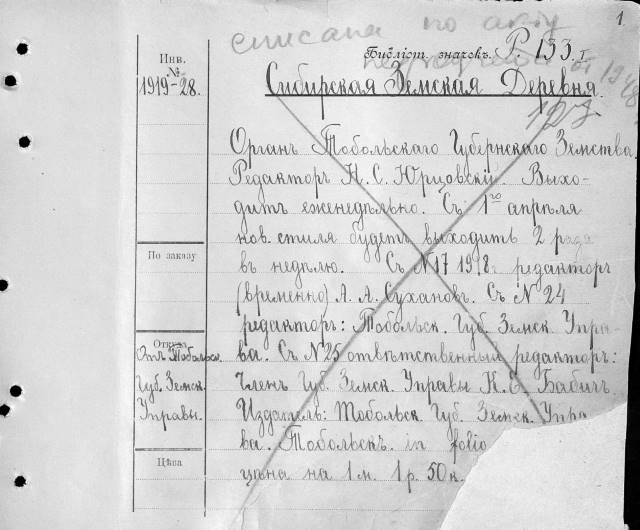 1.
списана по акту
Библіот. значекъ. P 133 I
Инв.
№
1919-28.
Сибирская Земская Деревня.
123
Органъ Тобольскаго Губернскаго Земства
Редакторъ Н. С. Юрцовскій. Выхо-
дитъ еженедѣльно. Съ 1го апрѣля
нов. стиля будетъ выходить 2 раза
въ недѣлю. Съ N 17 1918 г. редакторъ
По заказу
(временно) А. А. Сухановъ. Съ N 24
редакторъ: Тобольск. Губ. Земск. Упра-
Откуда
Отъ Тобольск.
Губ. Земск.
Управы.
ва. Съ N 25 отвѣтственный редакторъ:
Членъ Губ. Земск. Управы К. С. Бабичъ.
Издатель: Тобольск. Губ. Земск. Упра
ва. Тобольскъ. in folio
Цѣна
цѣна на 1 м. 1 р. 50 к.